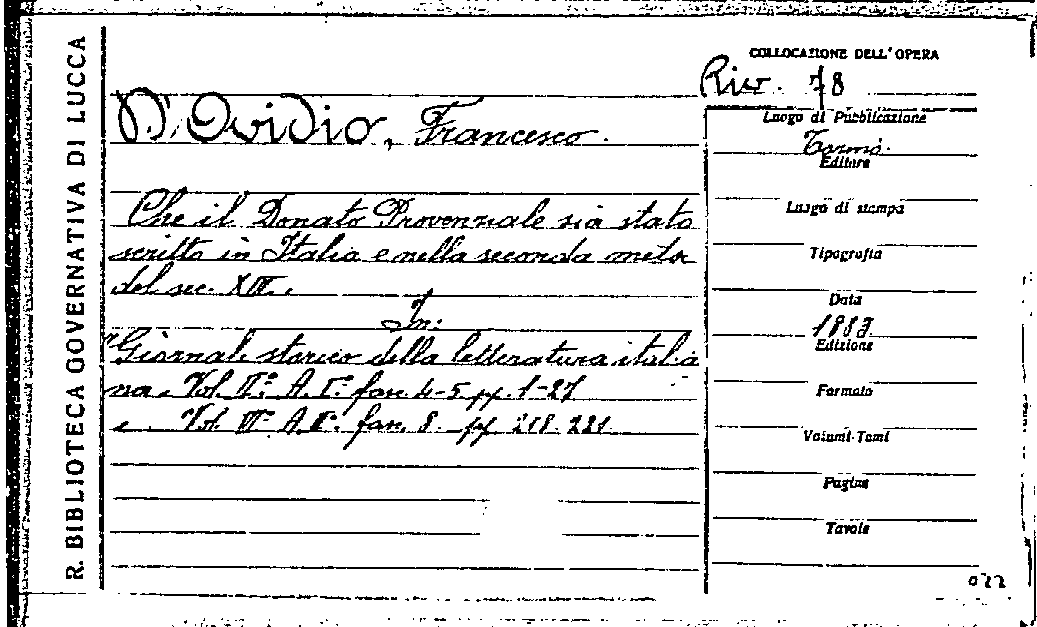 R. BIBLIOTECA GOVERNATIVA DI LUCCA
COLLOCAZIONE DELL'OPERA
Riv. 78
D'Ovidio, Francesco.
Che il Donato Provenzale sia stato
scritto in Italia e nella seconda metà
del sec. XIII.
In:
"Giornale storico della letteratura italia
na. Vol. II° A. I° fasc. 4-5 pp. 1-27
e Vol. A. fasc. 8. pp. 218-221
Luogo di Pubblicazione
Torino.
Editore
Luogo di stampa
Tipografia
Data
1883
Edizione
Formato
Volumi-Tomi
Pagine
Tavole
022